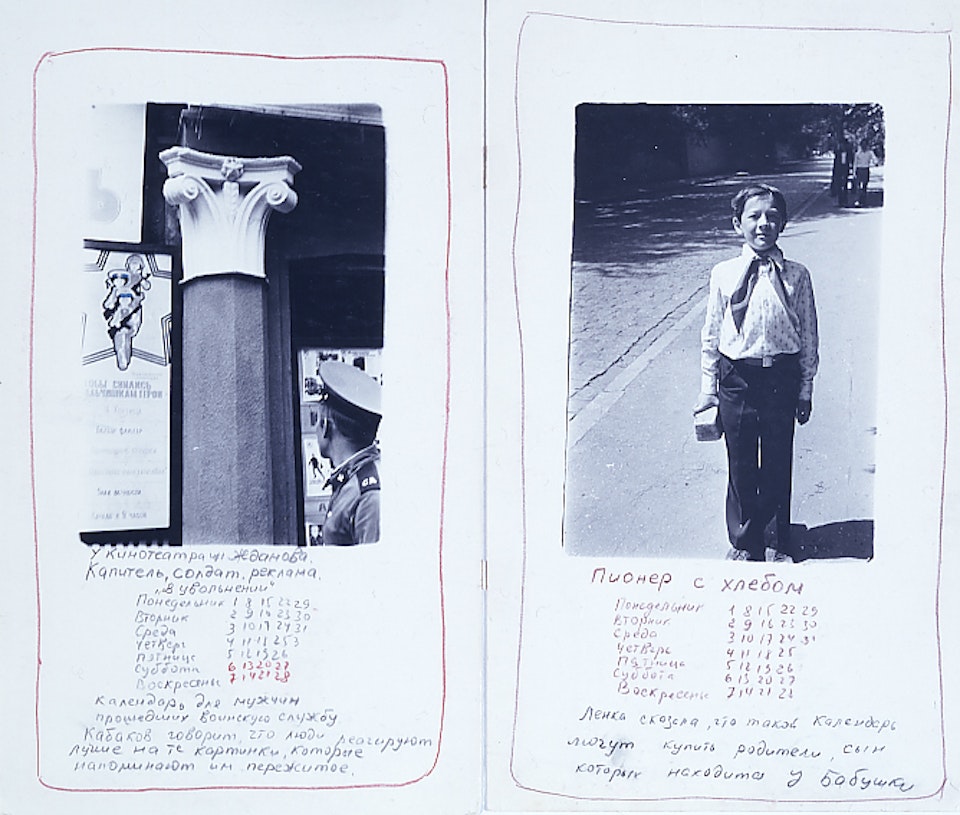 ЛЬЧИШКАМ ГЕРОИ
У кинотеатра им Жданова.
Капитель, солдат, реклама.
"в увольнении"
Понедельник 1 8 15 22 29
Вторник 2 9 16 23 30
Среда 3 10 17 24 31
Четверг 4 11 18 25
Пятница 5 12 19 26
Суббота 6 13 20 27
Воскресены 7 14 21 28
Календарь для мужчин
прошедших воинскую службу
Кабаков говорит, что люди реагируют
лучше на те картинки, которые
напоминают им пережитое.
Пионер с хлебом
Понедельник 1 8 15 22 29
Вторник 2 9 16 23 30
Среда 3 10 17 24 31
Четверг 4 11 18 25
Пятница 5 12 19 26
Суббота 6 13 20 27
Воскресены 7 14 21 28
Ленка сказала, что такой календарь
могут купить родители, сын
которых находится у бабушки